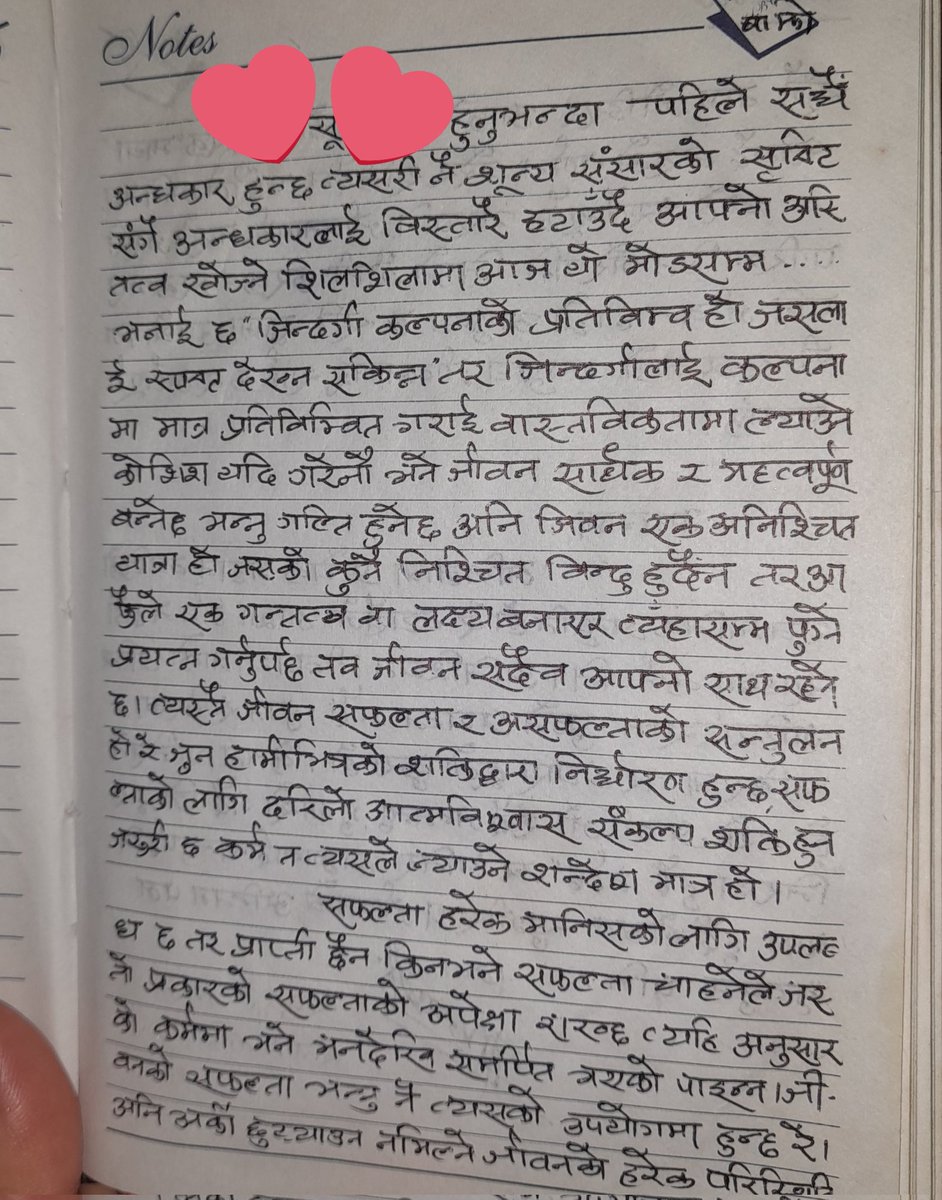 Notes
बाँकी
हुनुभन्दा पहिले सधैं
अन्धकार हुन्छ त्यसरी नै शून्य संसारको सृष्टि
संगै अन्धकारलाई विस्तारै हटाउँदै आफ्नो अस्ति
तत्व खोज्ने शिलशिलामा आज यो मोडसम्म ....
भनाई छ "जिन्दगी कल्पनाको प्रतिविम्व हो जसला
ई स्पष्ट देख्न सकिन्न" तर जिन्दगीलाई कल्पना
मा मात्र प्रतिविम्वित गराई वास्तविकतामा ल्याउने
कोशिश यदि गरेनौ भने जीवन सार्थक र महत्वपूर्ण
बन्नेछ भन्नु गल्ति हुनेछ अनि जिवन एक अनिश्चित
यात्रा हो जसको कुनै निश्चित विन्दु हुँदैन तर आ
फैले एक गन्तव्य वा लक्ष्य बनाएर त्यहासम्म पुग्ने
प्रयत्न गर्नुपर्छ तव जीवन सदैव आफ्नो साथ रहने
छ। त्यस्तै जीवन सफलता र असफलताको सन्तुलन
हो रे जुन हामीभित्रको शक्तिद्वारा निर्धारण हुन्छ, सफ
लताको लागि दरिलो आत्मविश्वास संकल्प शक्ति हुन
जरुरी छ कर्म त त्यसले ल्याउने शन्देश मात्र हो।
सफलता हरेक मानिसको लागि उपलब्
ध छ तर प्राप्ती छैन किनभने सफलता चाहनेले जस
तो प्रकारको सफलताको अपेक्षा राख्छ त्यहि अनुसार
को कर्ममा भने मनदेखि समर्पित भएको पाइन्न। जी-
वनको सफलता भन्नु नै त्यसको उपयोगमा हुन्छ रे।
अनि अर्को छुट्याउन नमिल्ने जीवनको हरेक परिस्थिति